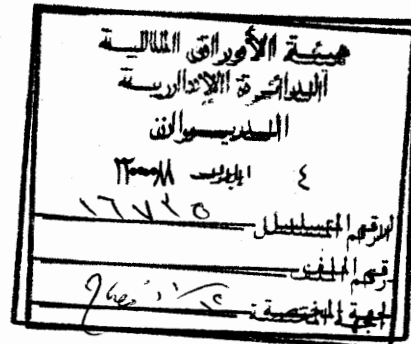 هيئة الأوراق المالية
الدائرة الإدارية
الديوان
٤ ايلول ٢٠٠٨
الرقم المتسلسل ١٦٧٢٥
رقم الملف
الجهة المختصة